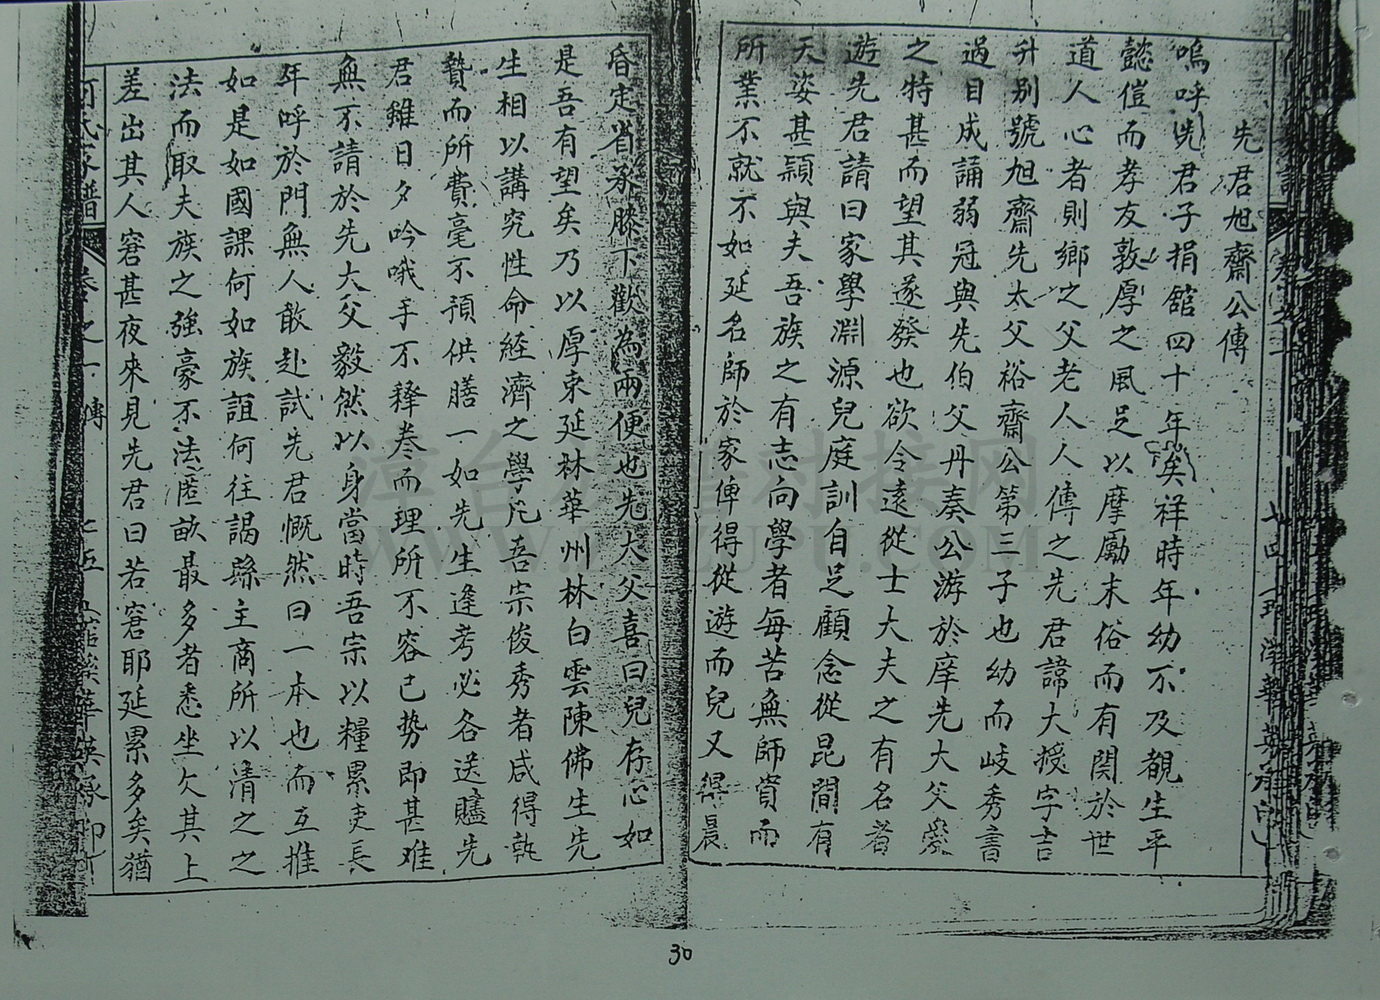 先君旭齋公傳
嗚呼先君子捐舘四十年矣祥時年幼不及覩生平
懿愷而孝友敦厚之風足以摩勵末俗而有関於世
道人心者則鄉之父老人人傳之先君諱大授字吉
升别號旭齋先太父裕齋公第三子也幼而岐秀書
過目成誦弱冠與先伯父丹奏公游於庠先大父愛
之特甚而望其遂發也欲令遠從士大夫之有名者
遊先君請曰家學淵源兒庭訓自足顧念從昆間有
天姿甚穎與夫吾族之有志向學者每苦無師資而
所業不就不如延名師於家俾得從遊而兒又得晨
昏定省承膝下歡為兩便也先大父喜曰兒存心如
是吾有望矣乃以厚束延林華州林白雲陳佛生先
生相以講究性命經濟之學凡吾宗俊秀者咸得執
贄而所費毫不預供膳一如先生逢考必各送贐先
君雖日夕吟哦手不釋卷而理所不容已势即甚难
無不請於先大父毅然以身當時吾宗以糧累吏長
年呼於門無人敢赴試先君慨然曰一本也而互推
如是如國課何如族誼何往謁縣主商所以清之之
法而取夫族之強豪不法匿畝最多者悉坐欠其上
差出其人窘甚夜來見先君曰若窘耶延累多矣猶
家譜
卷之一
傳
七五
30
WWW. ZUPU.COM